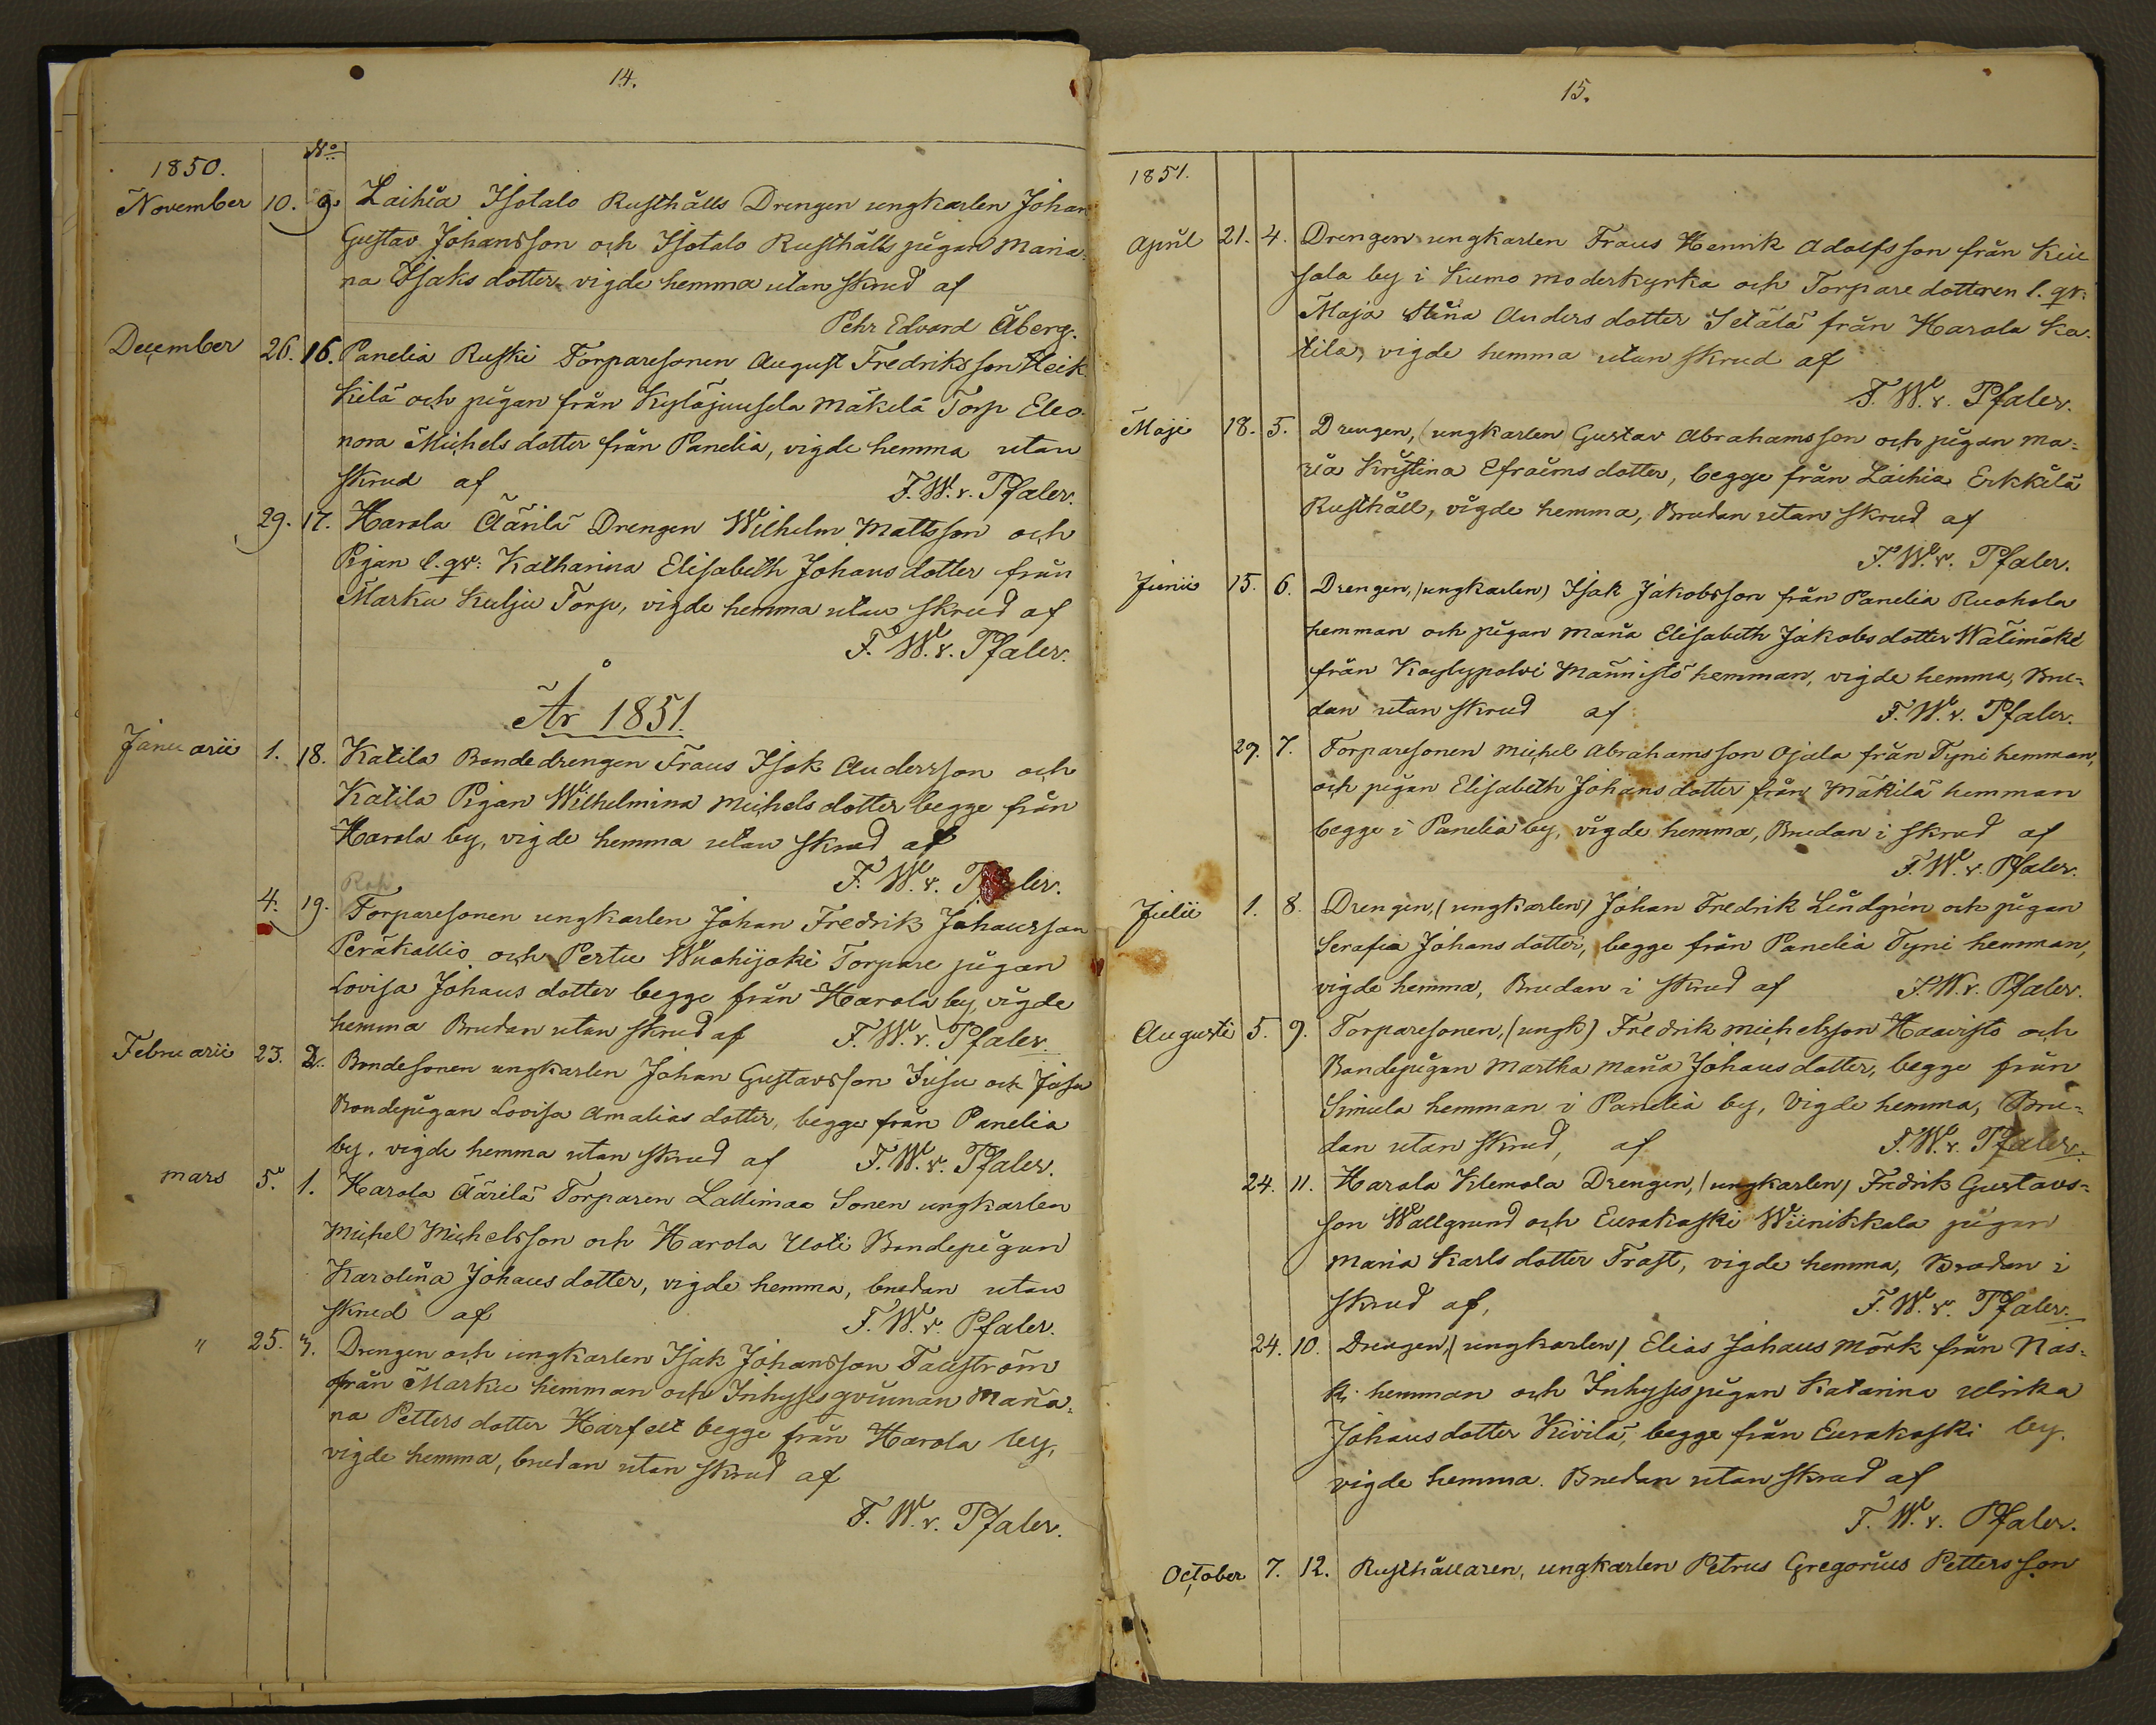 14.
No
1850.
November 10. 9. Laihia Isotalo Rusthålls Drengen ungkarlen Johan
Gustav Johansson och Isotalo Rusthålls pigan Maria-
na Isaks dotter vigde hemma utan skrud af
Pehr Edvard Åberg.
December 26. 16. Panelia Ruski Torparesonen August Fredriksson Heik
kilä och pigan från Kyläjuusela Mäkelä Torp Eleo-
nora Michels dotter från Panelia, vigde hemma utan
skrud af F. W. v. Pfaler.
29. 17. Harola Äärilä Drengen Wilhelm Mattsson och
Pigan l. qv: Katharina Elisabeth Johans dotter från
Marku Kulju Torp, vigde hemma utan skrud af
F. W. v. Pfaler.
År 1851.
Januarii 1. 18. Katila Bondedrengen Frans Isak Andersson och
Katila Pigan Wilhelmina Michels dotter begge från
Harola by, vigde hemma utan skrud af
F. W. v. Pfaler.
4. 19. Torparesonen ungkarlen Johan Fredrik Johansson
Peräkallio och Pertu Wuohijoki Torpare pigan
Lovisa Johans dotter begge från Harola by, vigde
hemma Brudan utan skrud af F. W. v. Pfaler.
Februarii 23. 2. Bondesonen ungkarlen Johan Gustavsson Jusu och Jusu
Bondepigan Lovisa Amalias dotter, begge från Panelia
by, vigde hemma utan skrud af F. W. v. Pfaler.
Mars 5. 1. Harola Äärilä Torparen Lallimaa Sonen ungkarlen
Michel Michelsson och Harola Uoti Bondepigan
Karolina Johans dotter, vigde hemma, brudan utan
skrud af F. W. v. Pfaler.
" 25. 3. Drengen och ungkarlen Isak Johansson Fauström
från Marku hemman och Inhyses qvinnan Maria-
na Petters dotter Harfelt begge från Harola by,
vigde hemma, brudan utan skrud af
F. W. v. Pfaler.
15.
1851.
April 21. 4. Drengen ungkarlen Frans Henrik Adolfsson från Kuu
sola by i Kumo moderkyrka och Torpare dotteren l. qv:
Maja Stina Anders dotter Setälä från Harola Ka-
tila, vigde hemma utan skrud af
F. W. v. Pfaler.
Maji 18. 5. Drengen, (ungkarlen Gustav Abrahamsson och pigan Ma-
ria Kristina Efraims dotter, begge från Laihia Erkkilä
Rusthåll, vigde hemma, Brudan utan skrud af
F. W. v. Pfaler.
Junii 15. 6. Drengen, (ungkarlen) Isak Jakobsson från Panelia Ruohola
hemman och pigan Maria Elisabeth Jakobs dotter Wälimäki
från Köylypolvi Männistö hemman, vigde hemma, Bru-
dan utan skrud af F. W. v. Pfaler.
29. 7. Torparesonen Michel Abrahamsson Ojala från Tyni hemman,
och pigan Elisabeth Johans dotter från Mäkilä hemman
begge i Panelia by, vigde hemma, Brudan i skrud af
F. W. v. Pfaler.
Julii 1. 8. Drengen, (ungkarlen) Johan Fredrik Lindgrén och pigan
Serafia Johans dotter, begge från Panelia Tyni hemman,
vigde hemma, Brudan i skrud af F. W. v. Pfaler.
Augusti 5. 9. Torparesonen, (ungk) Fredrik Michelsson Haavisto och
Bondepigan Martha Maria Johans dotter, begge från
Simula hemman i Panelia by, Vigde hemma, Bru-
dan utan skrud, af F. W. v. Pfaler.
24. 11. Harola Klemola Drengen, (ungkarlen) Fredrik Gustavs-
son Wallgrund och Eurakoski Wiinikkala pigan
Maria Karls dotter Trast, vigde hemma, Brudan i
skrud af, F. W. v. Pfaler.
24. 10. Drengen, (ungkarlen) Elias Johans Mörk från Näs-
ki hemman och Inhysespigan Katarina Ulrika
Johansdotter Kivilä, begge från Eurakoski by.
vigde hemma. Brudan utan skrud af
F. W. v. Pfaler.
October 7. 12. Rusthållaren, ungkarlen Petrus Gregorius Pettersson